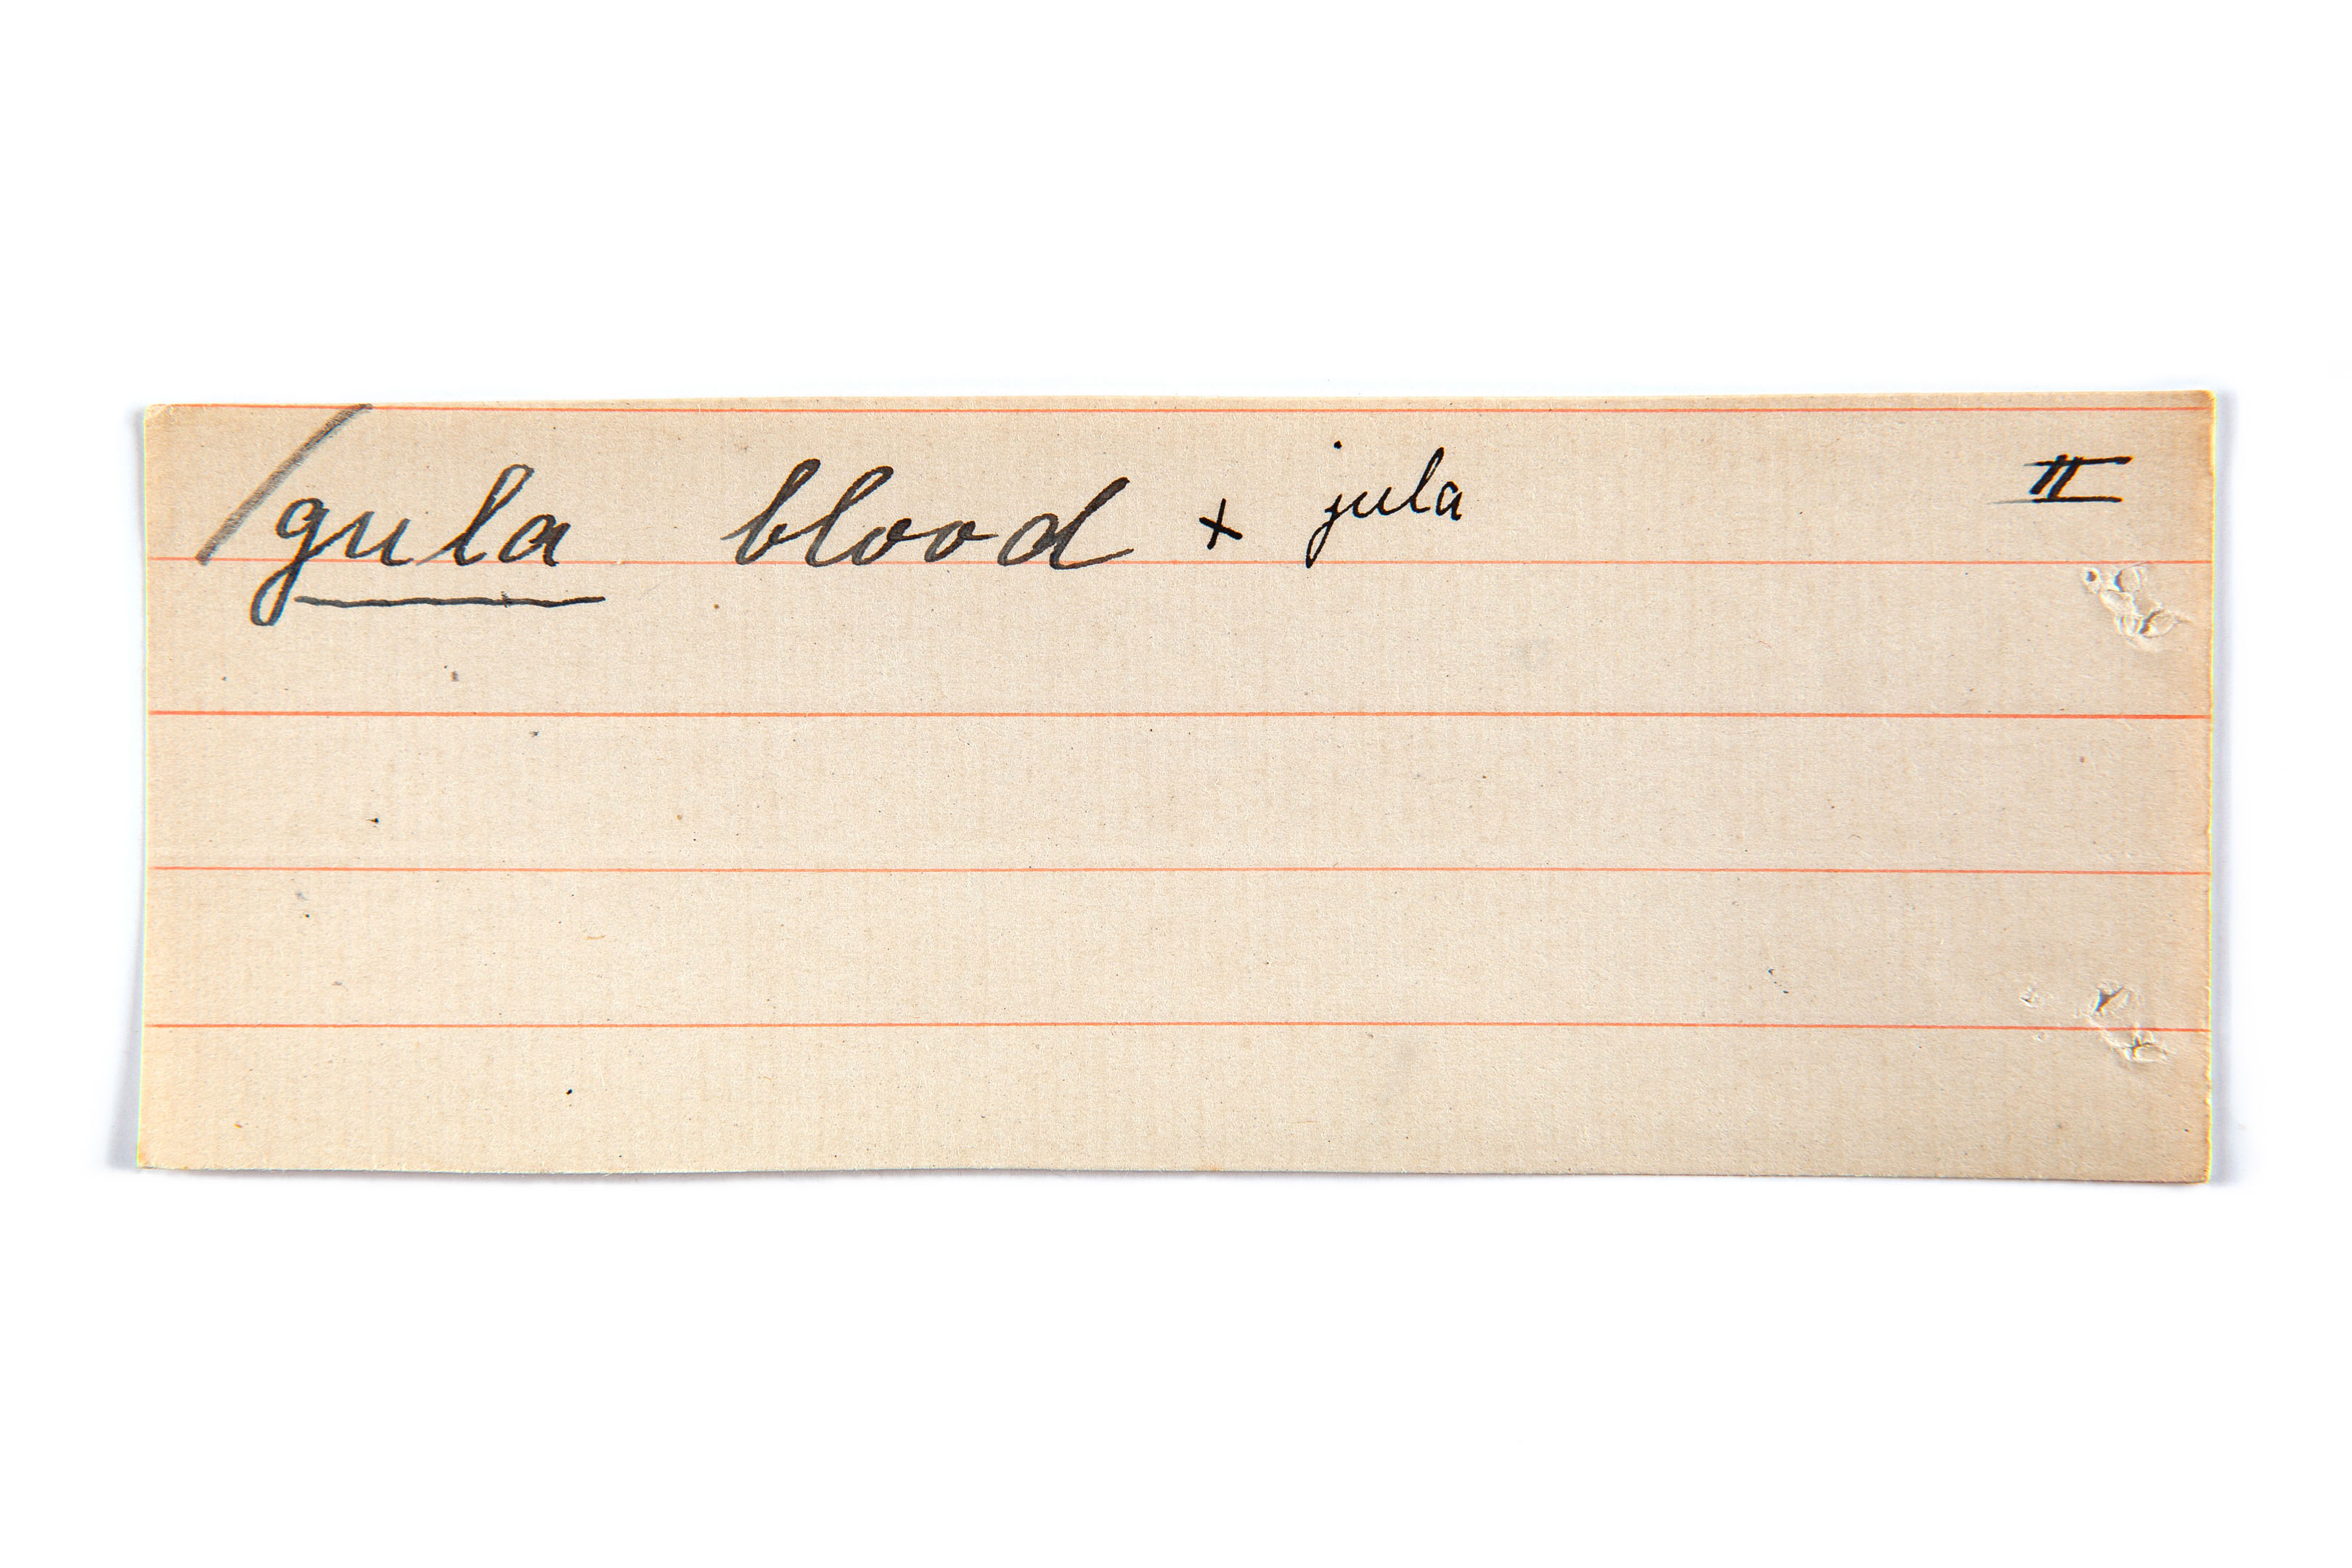 /gula blood x jula II